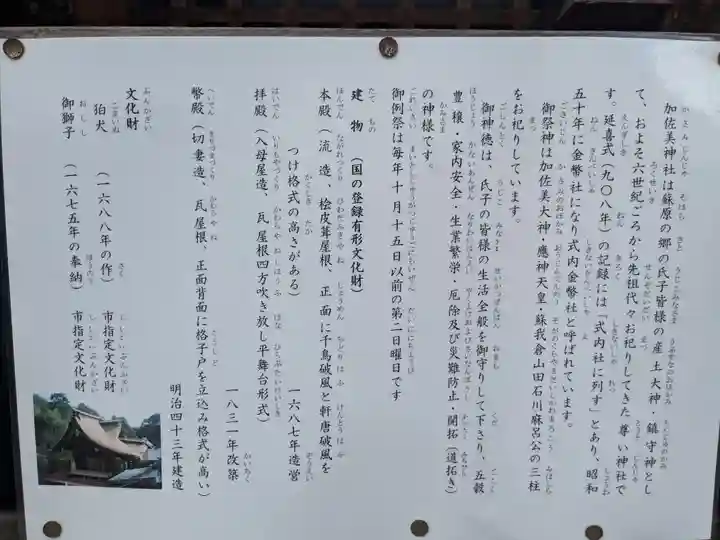 加佐美神社は蘇原の郷の氏子皆様の産土大神・鎮守神とし
て、およそ六世紀ごろから先祖代々お祀りしてきた尊い神社で
す。延喜式（九〇八年）の記録には「式内社に列す」とあり、昭和
五十年に金幣社になり式内金幣社と呼ばれています。
御祭神は加佐美大神・應神天皇・蘇我倉山田石川麻呂公の三柱
をお祀りしています。
御神徳は、氏子の皆様の生活全般を御守りして下さり、五穀
豊穣・家内安全・生業繁栄・厄除及び災難防止・開拓（道拓き）
の神様です。
御例祭は毎年十月十五日以前の第二日曜日です
建物（国の登録有形文化財）
本殿（流造、桧皮葺屋根、正面に千鳥破風と軒唐破風を
つけ格式の高さがある）
一六八七年造営
拝殿（入母屋造、瓦屋根四方吹き放し平舞台形式）
一八三一年改築
幣殿（切妻造、瓦屋根、正面背面に格子戸を立込み格式が高い）
明治四十三年建造
文化財
狛犬（一六八八年の作）市指定文化財
御獅子（一六七五年の奉納）市指定文化財